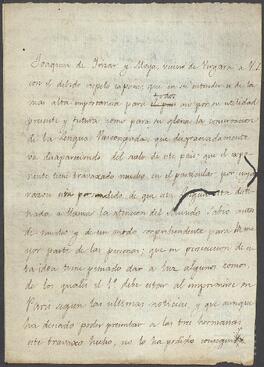 Joaquin de Irizar y Moya, vecino de Vergara a V.I.
con el debido respeto expone; que en su entender es de la
mas alta importancia para todos así por su utilidad
presente y futura como para su gloria la conservacion
de la Lengua Vascongada, que desgraciadamente
va desapareciendo del suelo de este pais; que el espo-
nente tiene travaxado mucho en el particular por
razon de que
nada a llamar la atencion del Mundo sabio antes
de mucho y de un modo sorprendente para la ma-
yor parte de las personas; que en prosecucion de es-
ta idea tiene pensado dar a luz algunos tomos
de los quales el 1º debe estar al imprimirse en
Paris segun las ultimas noticias, y que aunque
ha deseado poder presentar a las tres hermanas
este travaxo hecho, no lo ha podido conseguir